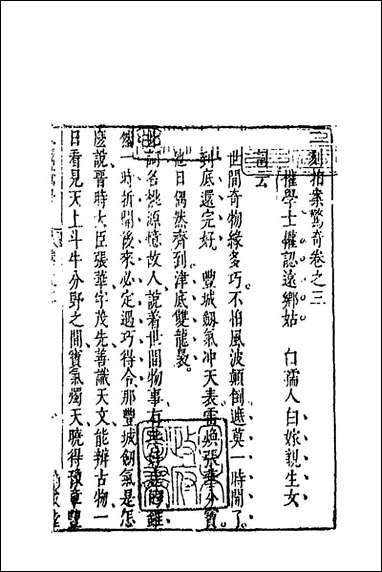 二刻拍案驚奇卷之三
權學士權認遠鄉姑 白孺人白嫁親生女
詞云
世間奇物緣多巧。不怕風波顛倒遮莫一時開了。
到底還完好 豐城劔氣冲天表雷煥張華分寶
他日偶然齊到津底雙龍裊。
此詞名桃源憶故人說着世間物事有的雖
然一時折開後來必定遇巧得合那豐城劔氣是怎
麼說晉時大臣張華字茂先善識天文能辨古物一
日看見天上斗牛分野之間寶氣燭天曉得豫章豐